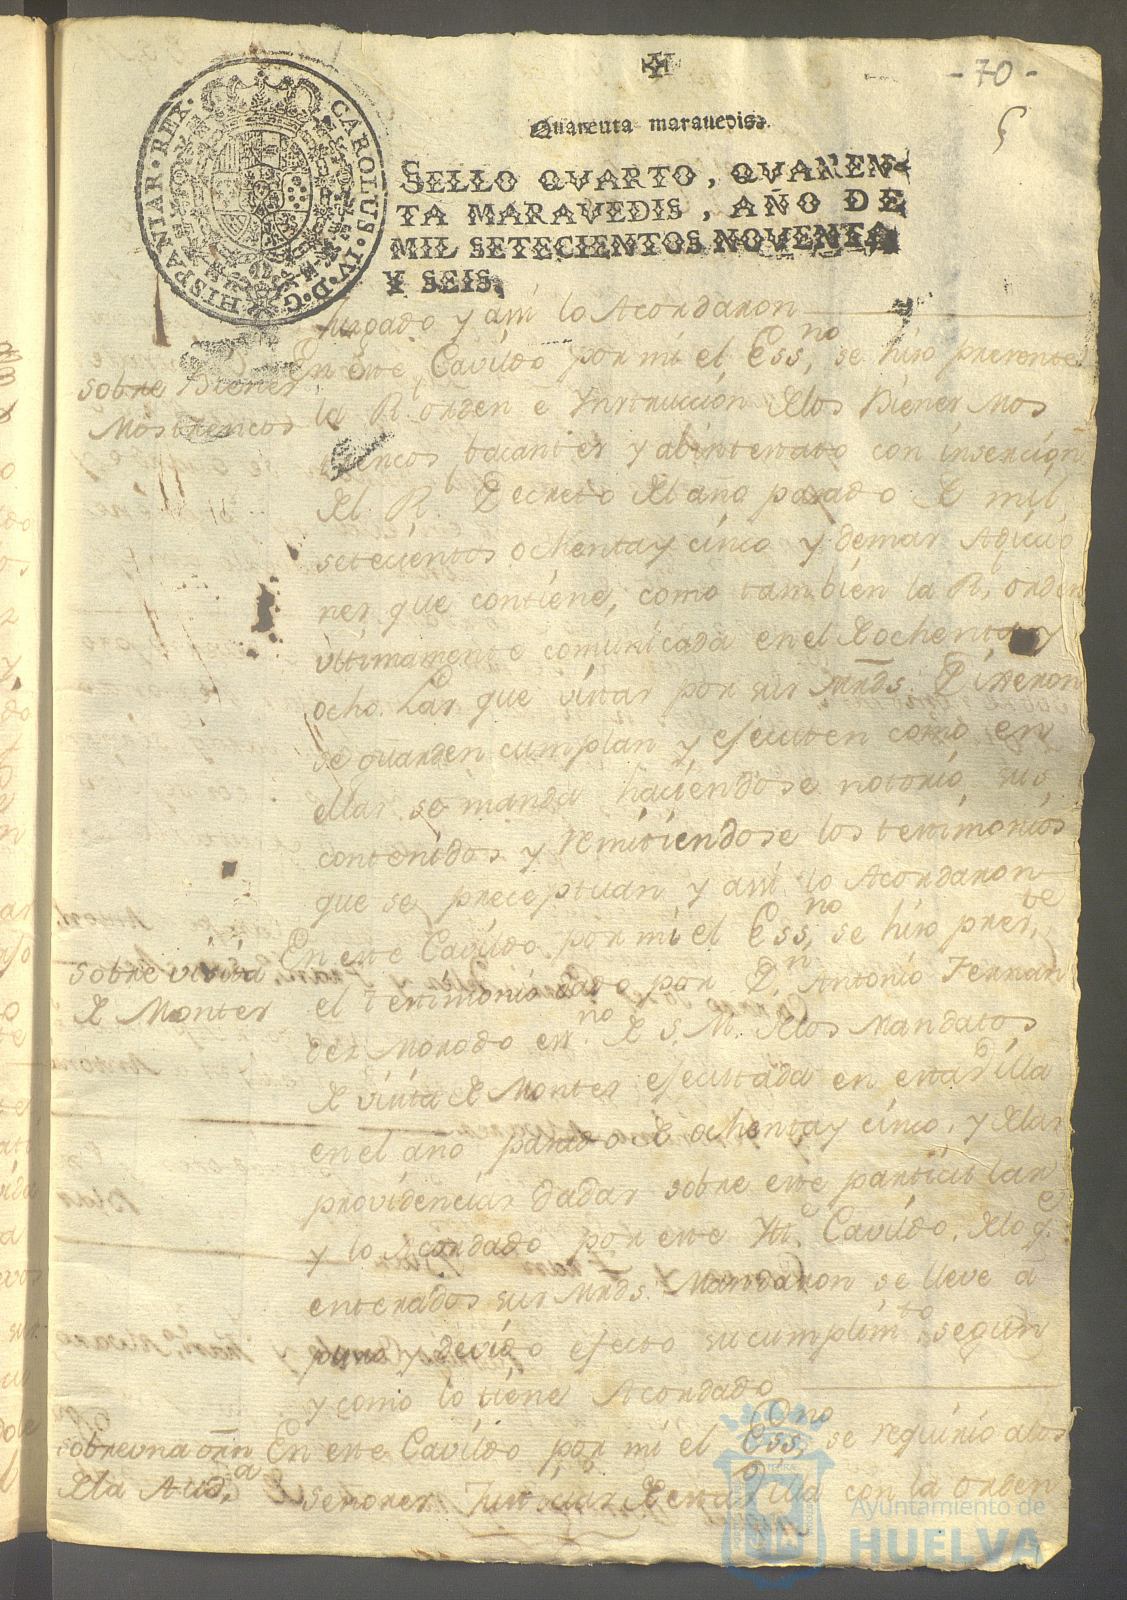 - 70 -
5
Quarenta maravedis.
SELLO QVARTO, QVAREN-
TA MARAVEDIS, AÑO DE
MIL SETECIENTOS NOVENTA
Y SEIS.
CAROLUS·IV·D·G·HISPANIAR·REX·
Juzgado y assi lo Acordaron
Sobre Bienes
Mostrencos
En este Cavildo por mi el Essno, se hizo presente
la Rl orden e Ynstruccion de los Bienes Mos
trencos bacantes y abintestato con insercion
del Rl Decreto del año pasado de mil
setecientos ochenta y cinco y demas Adicio
nes que contiene, como tambien la R. orden
ultimamente comunicada en el de ochenta y
ocho. Las que vistas por sus Mrds. Dixeron
se guarden cumplan y ejecuten como en
ellas se manda haciendose notorio sus
contenidos y remitiendose los testimonios
que se preceptuan y assi lo Acordaron
sobre visita
de Montes
En este Cavildo por mi el Essno, se hizo preste,
el testimonio dado por Dn Antonio Fernan
dez Morodo esno de S. M. de los Mandatos
de visita de Montes ejecutada en esta Villa
en el año pasado de ochenta y cinco, y de las
providencias dadas sobre este particular
y lo Acordado por este Ytte Cavildo, de lo qe
enterados sus Mrds. Mandaron se lleve a
puro y devido efecto su cumplimto segun
y como lo tiene Acordado
sobre una orn
de la Auda
En este Cavildo por mi el Essno, se requirio a los
señores Justicias de esta Villa con la orden
Ayuntamiento de
HUELVA